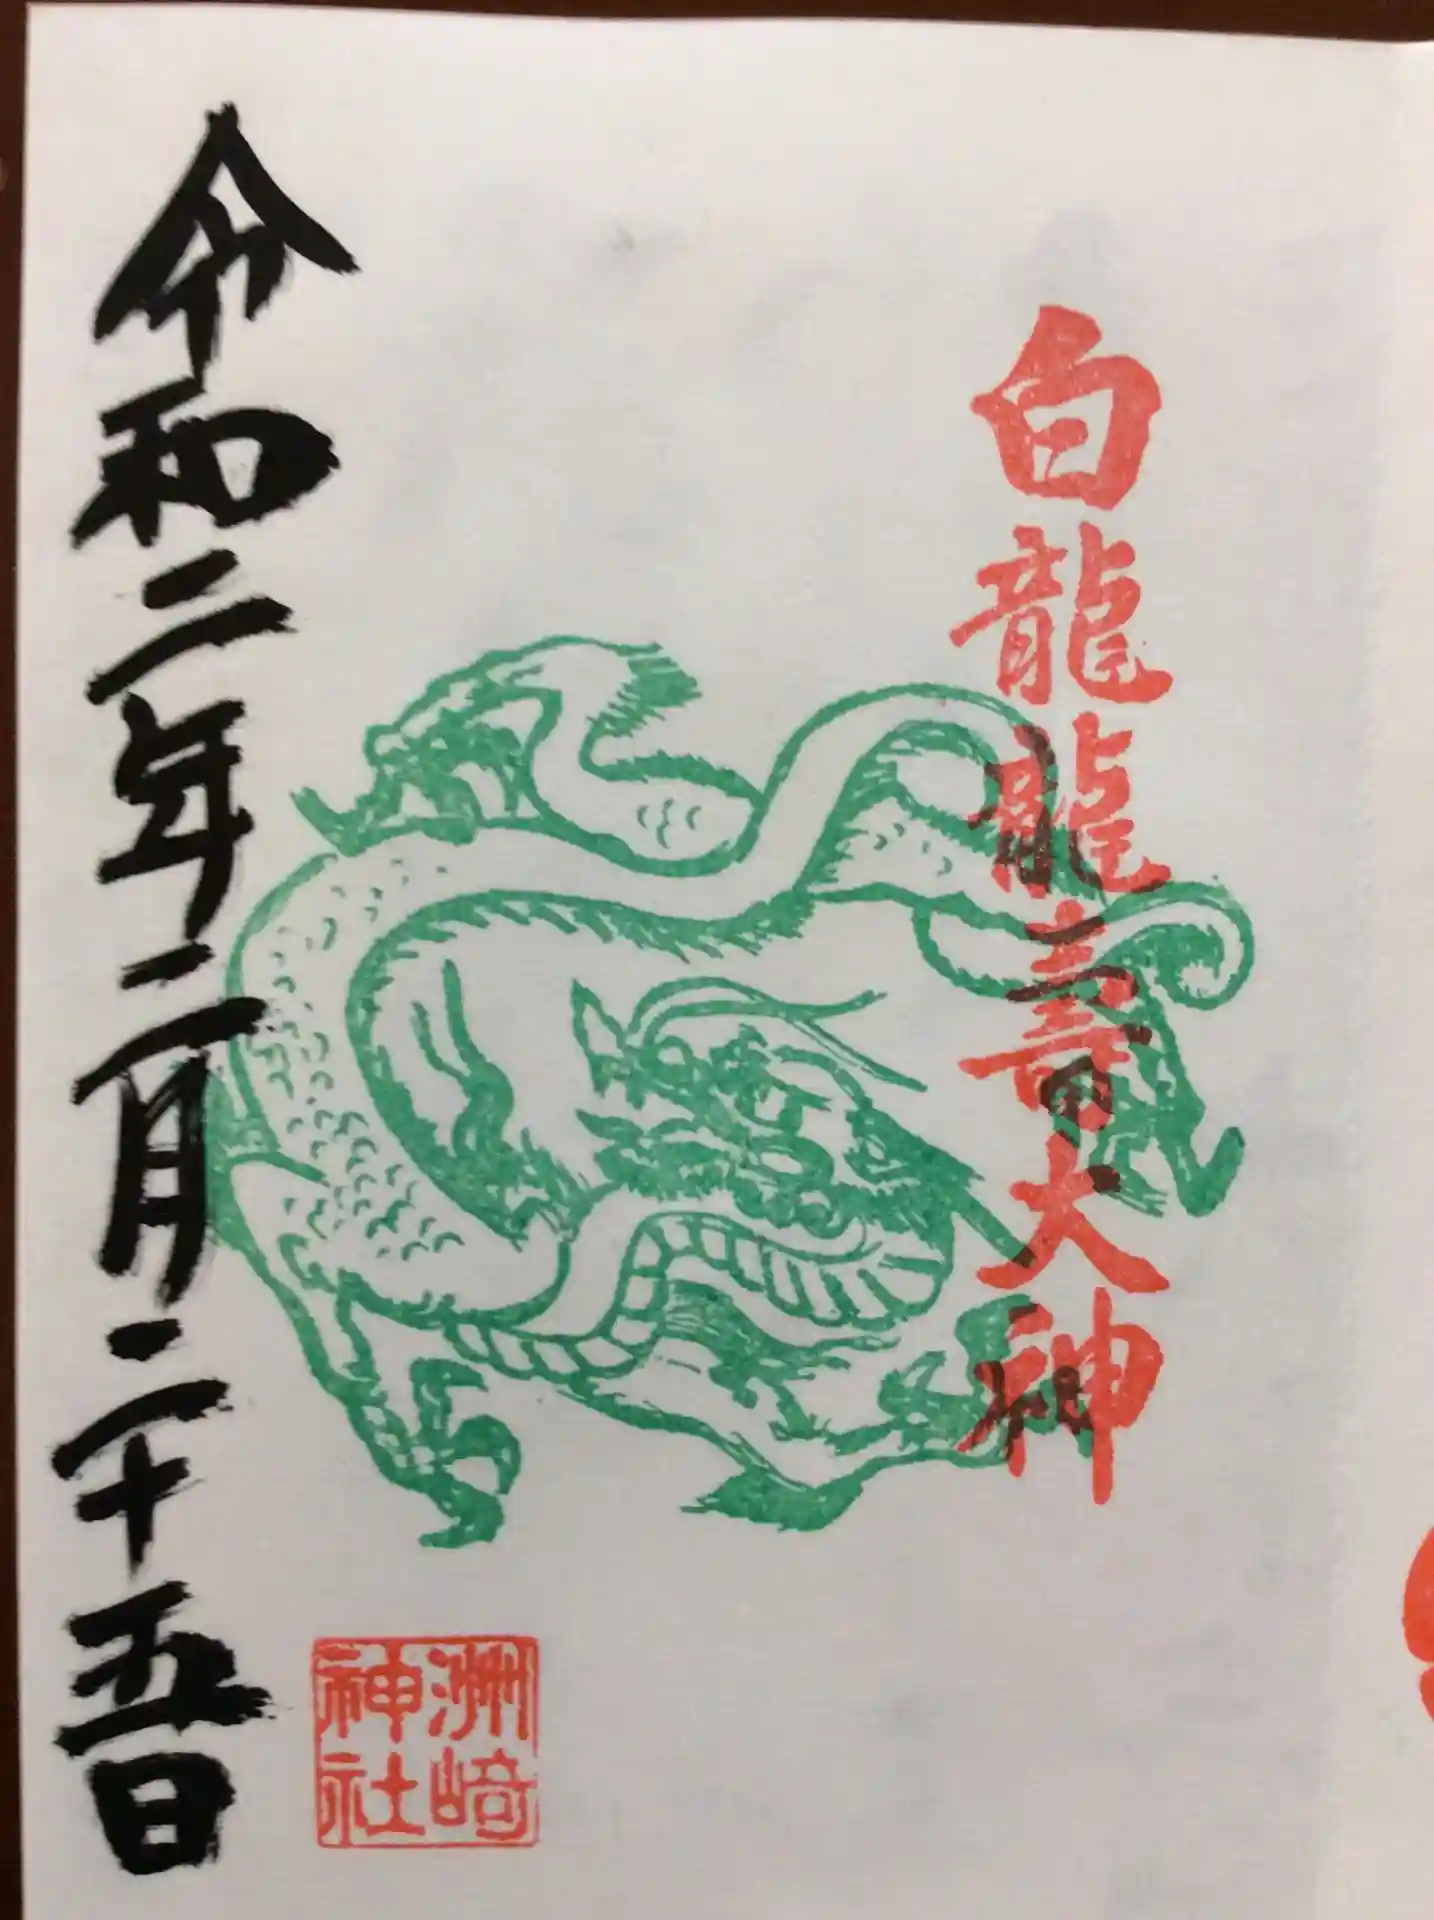 白龍龍壽大神
令和二年二月二十五日
洲﨑
神社